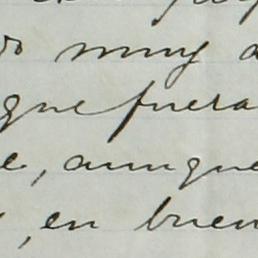 muy
que fuera
, aunque
, en buen